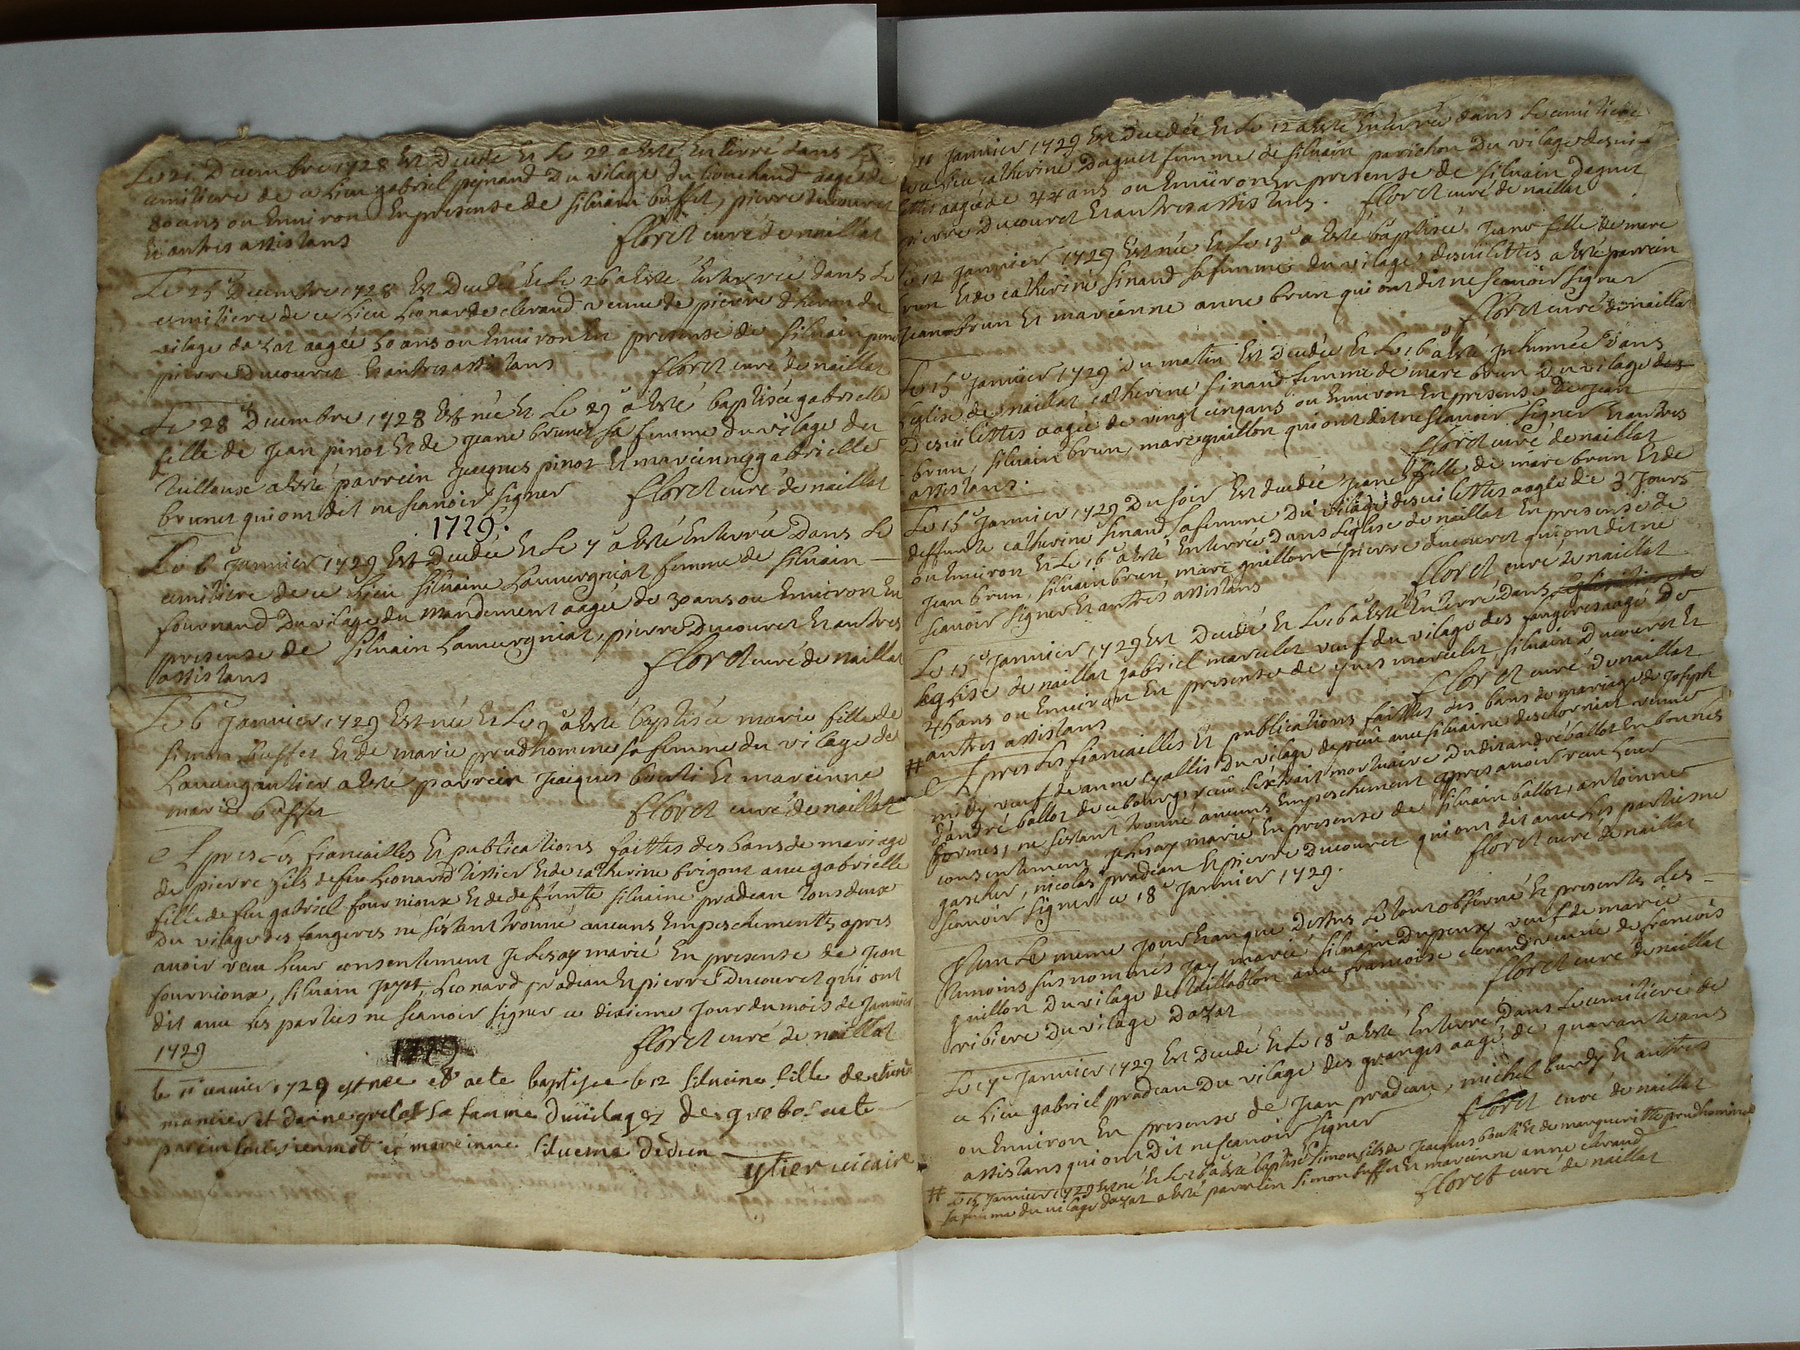 Le 21 Decembre 1728 Est Decedé Et Le 22 a Esté Enterré dans Le
cemitiere de ce Lieu gabriel peynaud Du vilage du bouchaud aagé de
80 ans ou Environ En presense de silvain buffet, pierre Ducouret
Et autres assistans floret curé de naillat
Le 25 Decembre 1728 Est Decedée Et Le 26 a Esté Enterrée dans Le
cemitiere de ce Lieu Lionarde clerand veuve de pierre du
vilage dazat aagée 50 ans ou Environ En presense de silvain
pierre Ducouret Et autres assistans floret curé de naillat
Le 28 Decembre 1728 Est née Et Le 29 a Esté baptisée gabrielle
fille de Jean pinot Et de Jeane brunet sa femme du vilage du
a Esté parrein Jacques pinot Et mareinne gabrielle
brunet qui ont dit ne scavoir signer floret curé de naillat
1729.
Le 6e Janvier 1729 Est Decedée Et Le 7e a Esté Enterrée Dans Le
cemitiere de ce Lieu silvaine Lauvergniat femme de silvain
fournaud Du vilage du mandement aagée de 30 ans ou Environ En
presense de silvain Lauvergniat, pierre Ducouret Et autres
assistans floret curé de naillat
Le 6e Janvier 1729 Est née Et Le 9e a Esté baptisée marie fille de
simon buffet Et de marie prudhomme sa femme du vilage de
a Esté parrein Jacques bouti Et mareinne
marie buffet floret curé de naillat
Apres Les fiancailles Et publications faittes des bans de mariage
de pierre fils de feu Lionard Et de catherine frigout avec gabrielle
fille de feu gabriel fournioux Et de deffunte silvaine pradeau tous deux
Du vilage des fougeres ne sestant trouvé aucuns Empeschements, apres
avoir receu Leur consentement Je Les ay marié En presense de Jean
fournioux, silvain Leonard pradeau Et pierre Ducouret qui ont
dit avec Les parties ne scavoir signer ce dixieme Jour du mois de Janvier
1729 floret curé de naillat
1729
le 11 ianvier 1729 est nee et a ete baptisee le 12 silveine fille de
et de sa famme du vilage des a ete
parein et mareinne silveine
vicaire
11 Janvier 1729 Est Decedée Et Le 12 a Esté Enterrée dans Le cemitiere
de ce Lieu catherine Daguet femme de silvain parichon Du vilage
aagée de 44 ans ou Environ En presense de silvain Daguet
pierre Ducouret Et autres assistans. floret curé de naillat
Le 12 Janvier 1729 Est née Et Le 13e a Esté baptisée Jeane fille de marc
brun Et de catherine sinaud sa femme du vilage desvilettes a Esté parrein
Jean brun Et mareinne anne brun qui ont dit ne scavoir signer
floret curé de naillat
Le 15e Janvier 1729 du matin Est Decedée Et Le 16e a Esté Inhumée Dans
Leglise de naillat catherine sinaud femme de marc brun Du vilage des
Desvilettes aagée de vingt cinq ans ou Environ En presense de Jean
brun, silvain brun, marc guillon qui ont dit ne scavoir signer Et autres
assistans. floret curé de naillat
Le 15e Janvier 1729 Du soir Est decedée Jeane fille de marc brun Et de
deffunte catherine sinaud sa femme Du vilage desvilettes aagée de 3 Jours
ou Environ Et Le 16e a Esté Enterrée dans Leglise de naillat En presense de
Jean brun, silvain brun, marc guillon pierre ducouret qui ont dit ne
scavoir signer Et autres assistans floret curé de naillat
Le 15e Janvier 1729 Est Decedé Et Le 16e a Esté Enterré Dans
Leglise de naillat gabriel marcelet veuf du vilage des fougeres aagé De
45 ans ou Environ En presense de yves marcelet silvain Ducouret Et
autres assistans floret curé de naillat
#
Apres Les fiancailles Et publications faittes des bans de mariage de Joseph
midy veuf de anne Du vilage avec silvaine veuve
d'andré ballot de ce bourg, veu L'extrait mortuaire Dudit andré ballot En bonnes
formes, ne sestant trouvé aucuns Empeschement apres avoir receu Leur
consentement Je Les ay marié En presense de silvain ballot, antoinne
garcher, nicolas pradeau Et pierre Ducouret qui ont dit avec Les parties ne
scavoir signer ce 18e Janvier 1729. floret curé de naillat
Item Le meme Jour Et an que dessus Le tout observé Et presents Les
tesmoins susnommés J'ay marié silvain Dupeux veuf de marie
guillon Du vilage de taillablon avec francoise clerand veuve de francois
ribiere Du vilage Dazat floret curé de naillat
Le 17e Janvier 1729 Est Decedé Et Le 18e a Esté Enterré Dans Le cemitiere de
ce Lieu gabriel pradeau Du vilage des granges aagé de quarante ans
ou Environ En presense de Jean pradeau, michel bardy Et autres
assistans qui ont Dit ne scavoir signer floret curé de naillat
# Le 15 Janvier 1729 Est né Et Le 16 a Esté baptisé simon fils de Jacques bouti Et de margueritte prudhomme
sa femme du vilage dazat a Esté parrein simon buffet Et mareinne anne clerand
floret curé de naillat